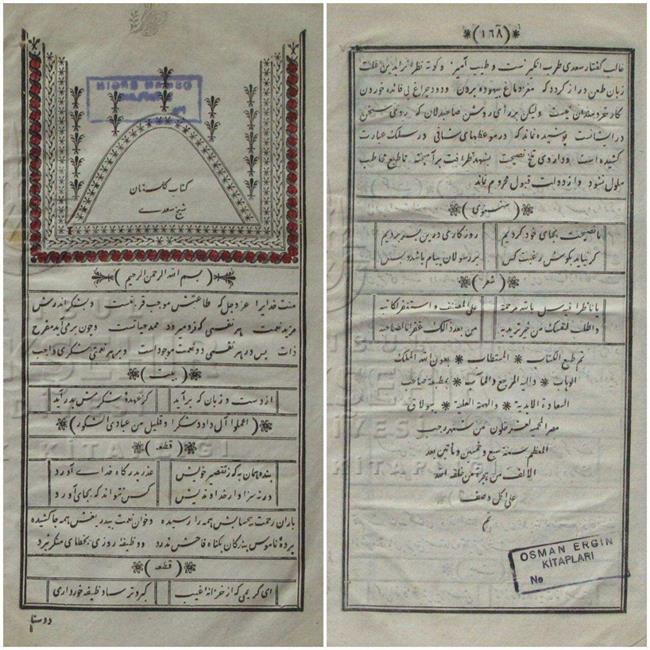 كتاب كلستان
شيخ سعدى
بسم الله الرحمن الرحيم
منت خدايرا عز وجل كه طاعتش موجب قربتست وبشكر اندرش
مزيد نعمت هر نفسى كه فرو ميرود ممد حياتست وچون برمى‌آيد مفرح
ذات پس در هر نفسى دو نعمت موجود است وبر هر نعمتى شكرى واجب
(بيت)
از دست وزبان كه برآيد كز عهدهٔ شكرش بدر آيد
(اعملوا آل داود شكرا وقليل من عبادى الشكور)
(قطعه)
بنده همان به كه ز تقصير خويش عذر بدركاه خداى آورد
ورنه سزاوار خداونديش كس نتواند كه بجاى آورد
باران رحمت بيحسابش همه را رسيده وخوان نعمت بيدريغش همه جا كشيده
پردهٔ ناموس بندكان بكناه فاحش ندرد ووظيفه روزى بخطاى منكر نبرد
(قطعه)
اى كريمى كه از خزانهٔ غيب كبر وترسا وظيفه خوردارى
دوستا
(١٦٨)
غالب كفتار سعدى طرب انكيزست وطيبت آميز وكوته نظرانرا بدين علت
زبان طعن دراز كردد كه مغز دماغ بيهوده بردن ودود چراغ بى فائده خوردن
كار خردمندان نيست وليكن بر رأى روشن صاحبدلان كه روى سخن
در ايشانست پوشيده نماند كه در موعظهاى شافى در سلك عبارت
كشيده است وداروى تلخ نصيحت بشهد ظرافت برآميخته تا طبع مخاطب
ملول نشود واز دولت قبول محروم نماند
(مثنوى)
ما نصيحت بجاى خود كرديم روزكارى درين بسر برديم
كر نيايد بكوش رغبت كس بر رسولان پيام باشد وبس
(شعر)
يا ناظرا فيه سل بالله مرحمة على المصنف واستغفر لكاتبه
واطلب لنفسك من خير تريد به من بعد ذلك غفرانا لصاحبه
تم طبع الكتاب * المستطاب * بعون الله الملك
الوهاب * واليه المرجع والمآب * بمطبعة صاحب
السعادة الابدية * والهمة العلية * ببولاق
مصر المحمية لعشر خلون من شهر رجب
المعظم سنة سبع وخمسين ومأتين بعد
الالف من هجرة من خلقه الله
على اكمل وصف
تم
OSMAN ERGİN
KİTAPLARI
No